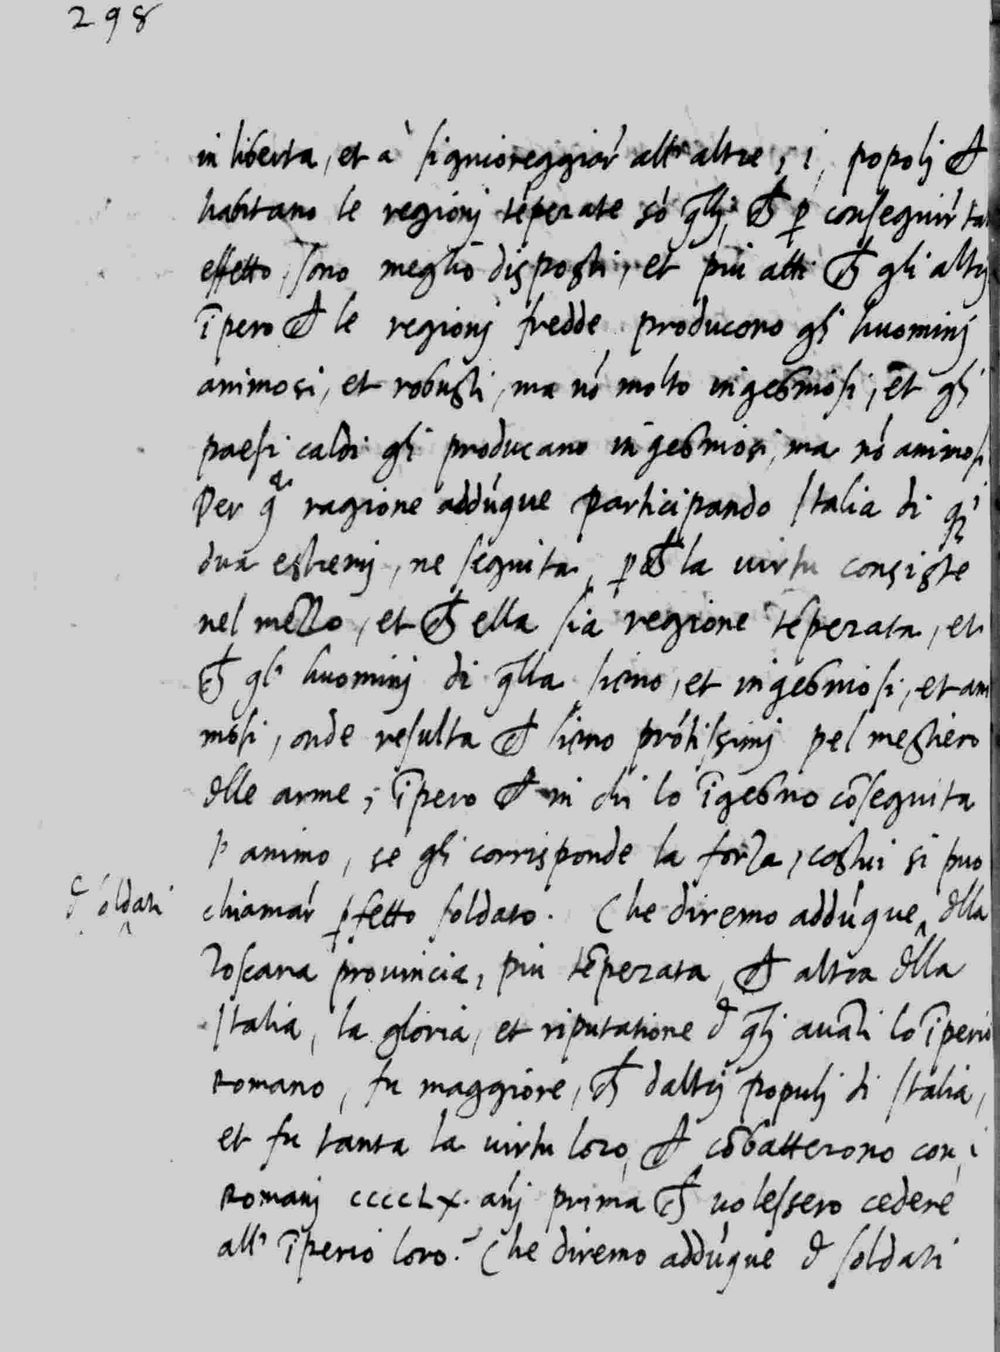 298
in liberta, et à signioreggiar' all'altre, i, popolj ch̄
habitano le regionj tēperate sō q̄llj, ch̄ p̱ conseguir' tal
effetto, sono meglio disposti, et piu atti ch̄ gli altrj
īpero ch̄ le regionj fredde producono gl'huominj
animosi, et robusti, ma nō molto ingegniosi, et gli
paesi caldi gli producano ingegniosi, ma nō animosi
Per qᵃ ragione addūque participando Italia di q̄sti
dua estremj, ne seguita, p̱ch̄ la virtu consiste
nel mezzo, et ch̄ ella sia regione tēperata, et
ch̄ gl'huominj di q̄lla sieno, et ingegniosi, et ani
mosi, onde resulta ch̄ sieno prōtissimj pel mestiero
d̄lle arme; īpero ch̄ in chi lo īgegno cōseguita
l'animo, se gli corrisponde la forza, costui si puo
chiamar' p̱fetto soldato. Che diremo addūque d̄lla
d̄ soldati
Toscana provincia, piu tēperata, ch̄ altra d̄lla
Italia, la gloria, et riputatione d̄ q̄llj avāti lo īperio
Romano, fu maggiore, ch̄ d'altrj populj di Italia,
et fu tanta la virtu loro, ch̄ cōbatterono con, i
Romanj CCCCLX. ānj prima ch̄ volessero cedere
all'īperio loro? Che diremo addūque d̄ soldati